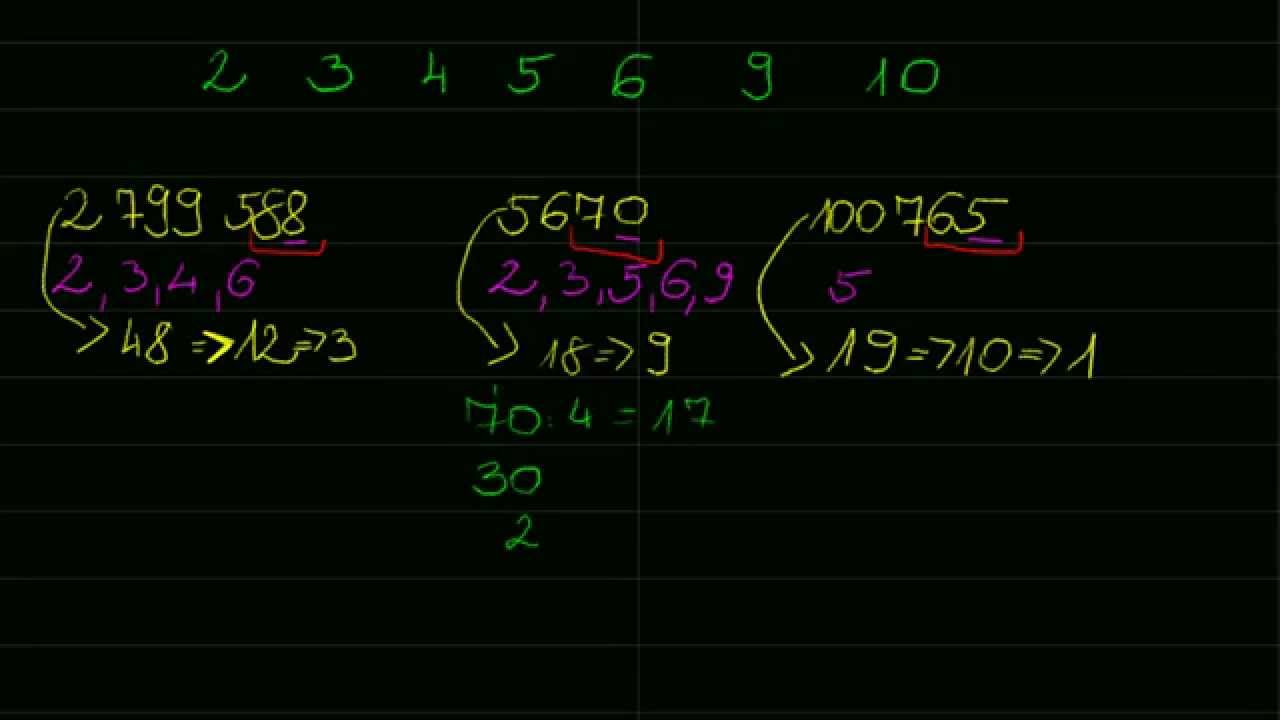 2 3 4 5 6 9 10
2 799 588 5670 100 765
2, 3, 4, 6 2, 3, 5, 6, 9 5
48 => 12 => 3 18 => 9 19 => 10 => 1
70 : 4 = 17
30
2